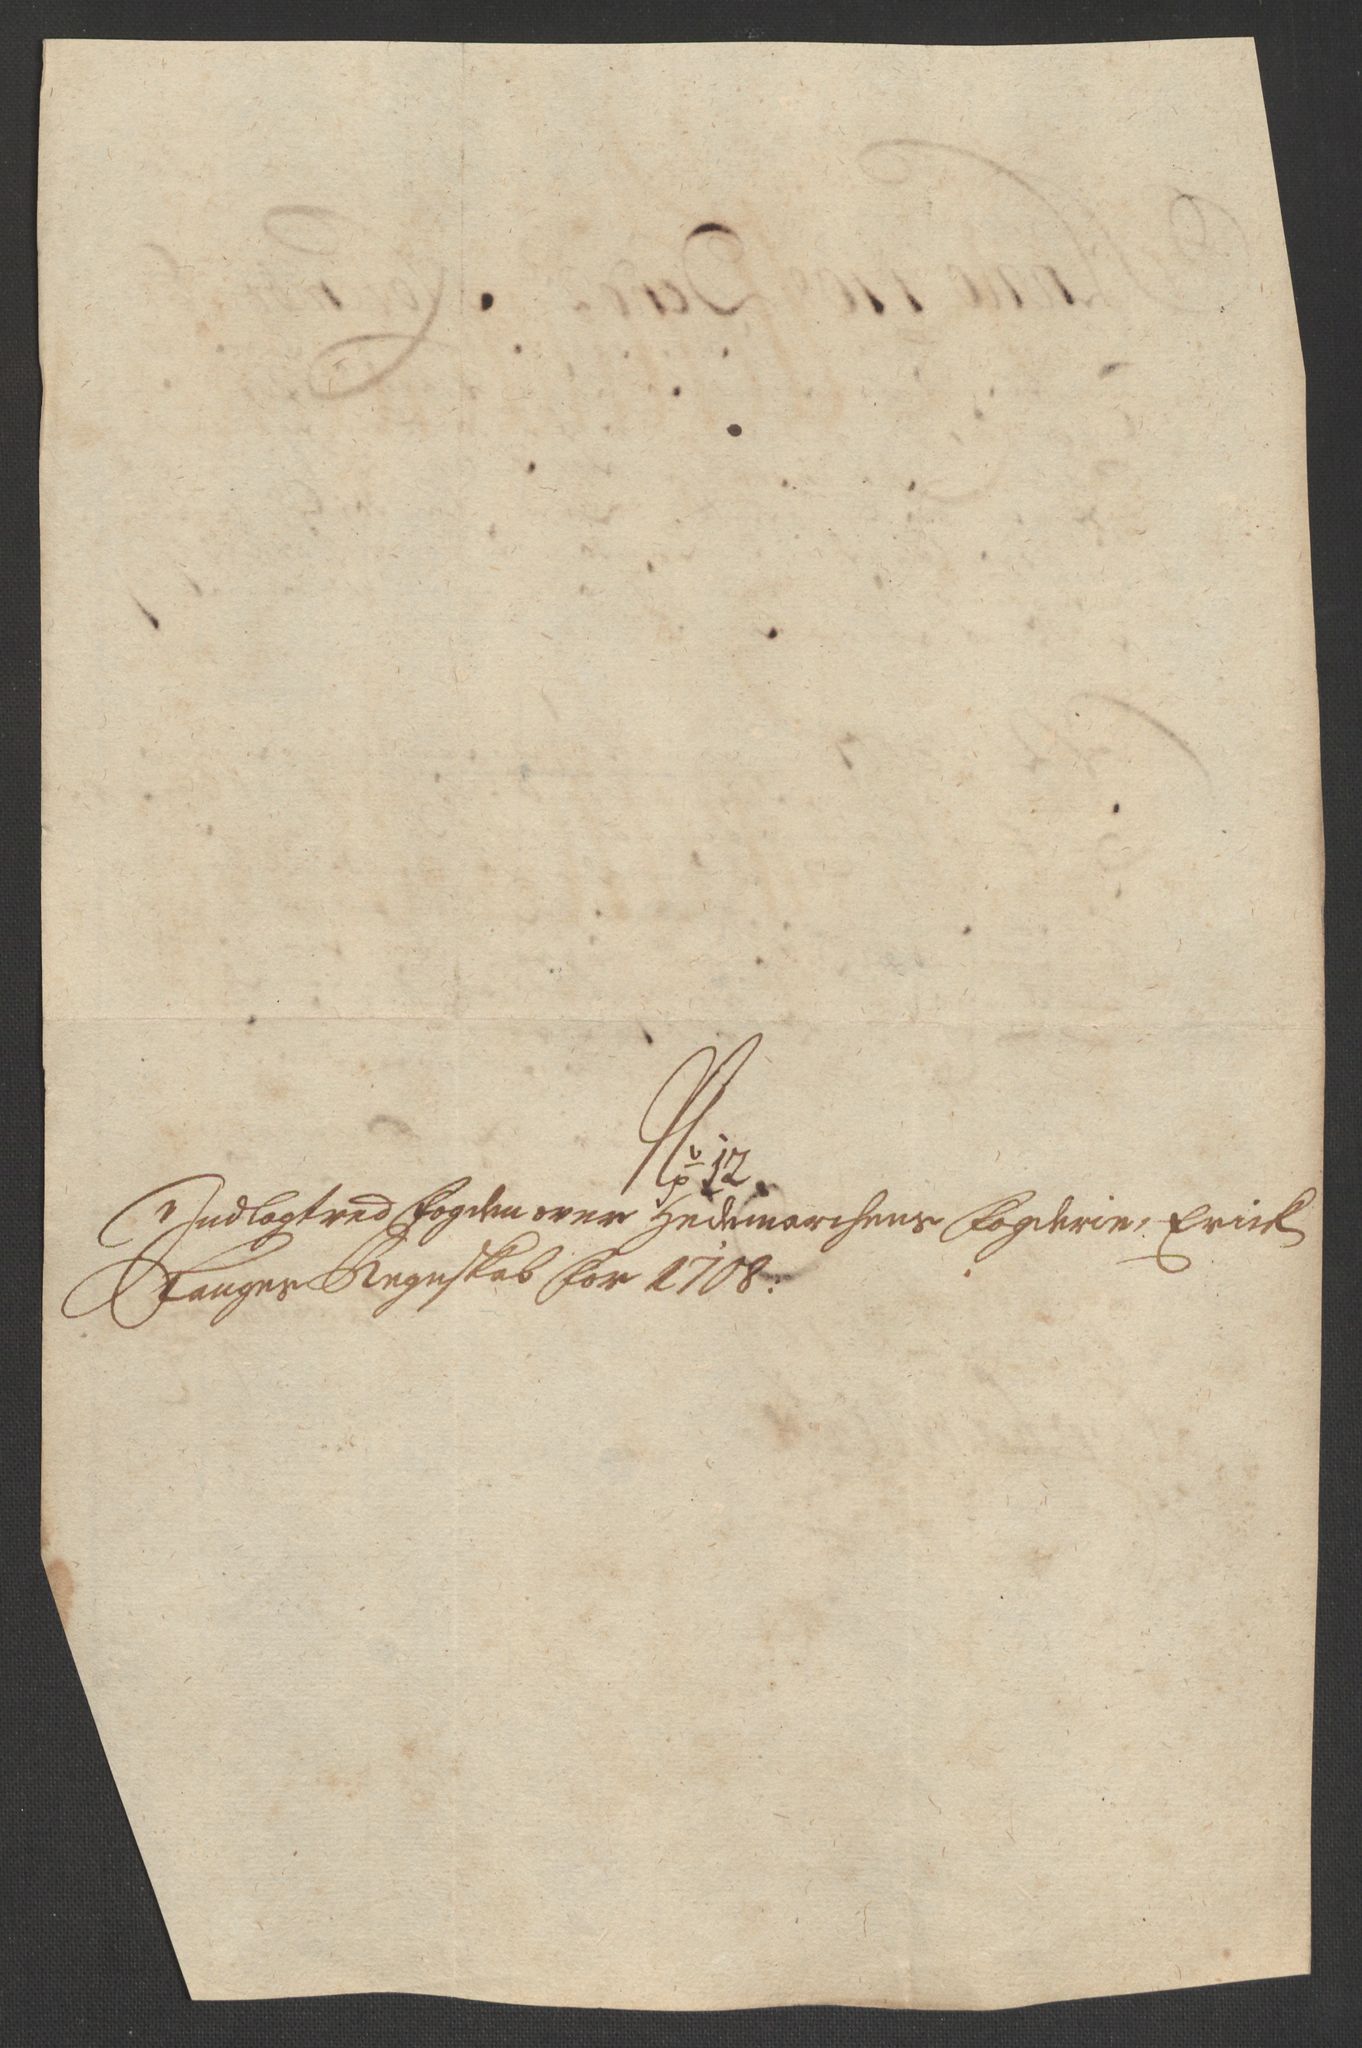 No 12
Indlagt ved Fogden over Hedemarchens Fogderie, Erick
Fanges Regnskab for 1708: